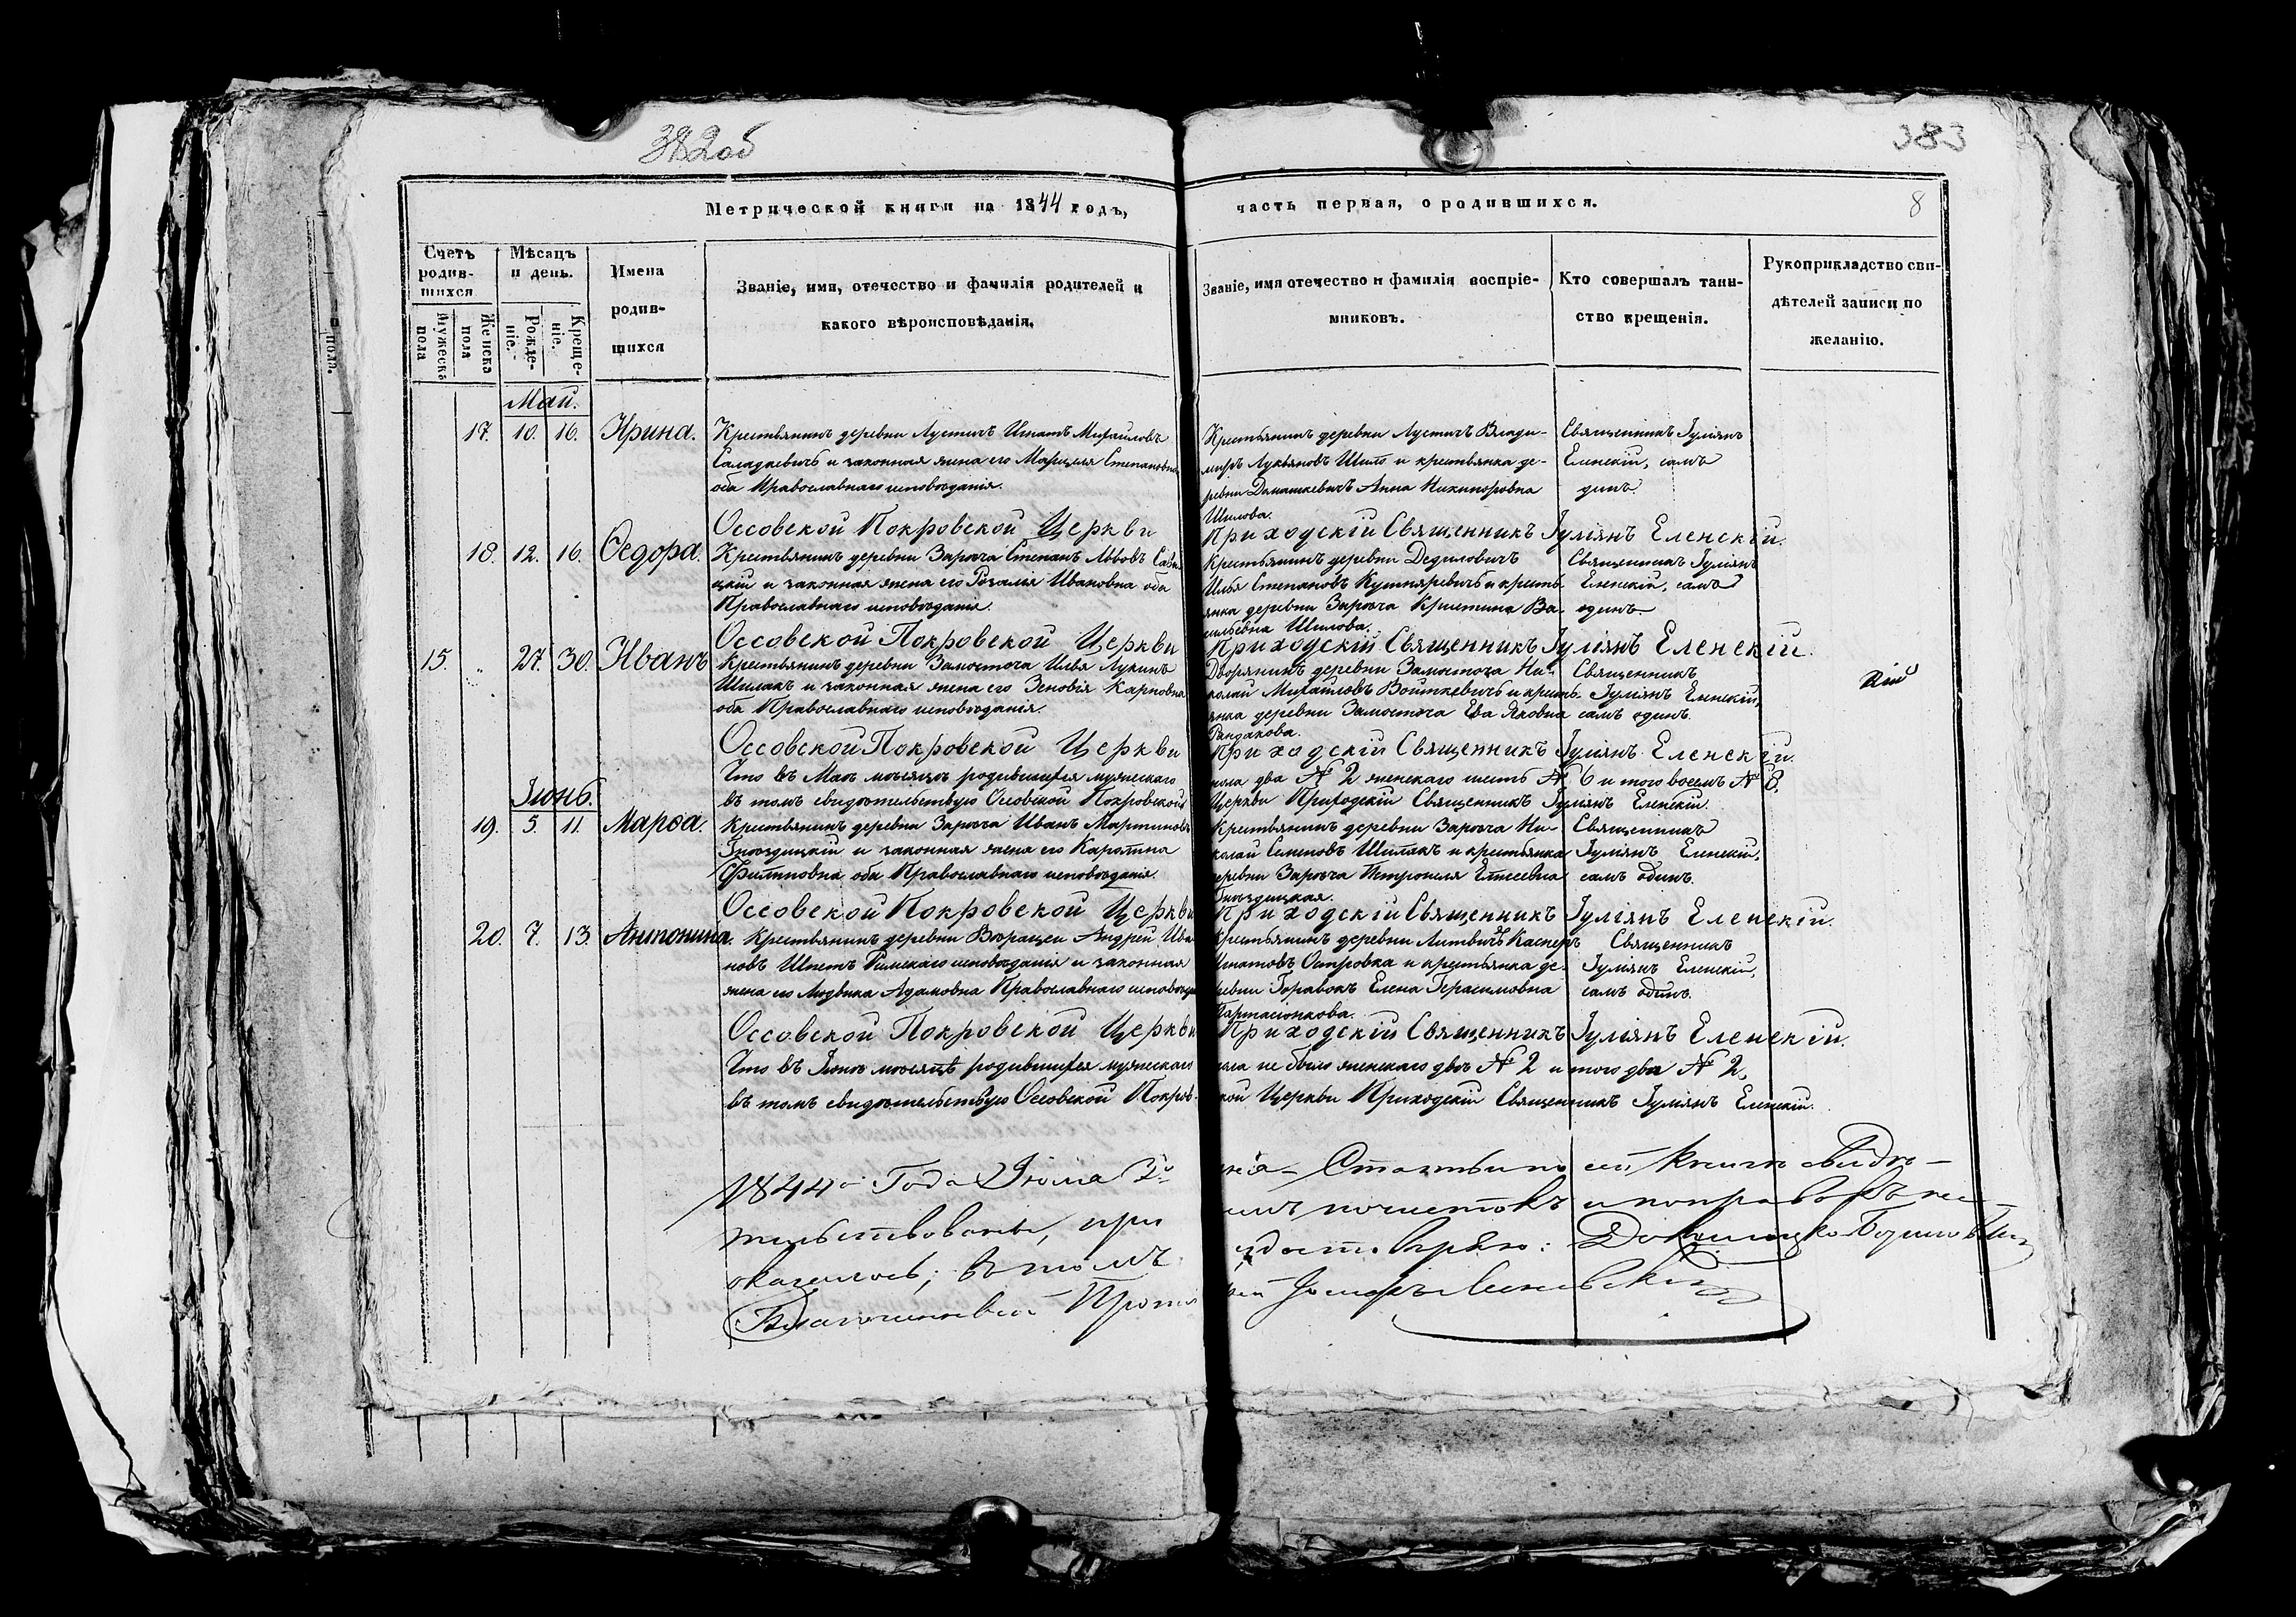 382об
383
Метрической книги на 1844 годъ,
часть первая, о родившихся.
8
Счетъ родив-шихся
Мужеска пола
Женска пола
Мѣсяцъ и день.
Рожде-ніе.
Креще-ніе.
Имена родив-шихся
Званіе, имя, отечество и фамилія родителей и какого вѣроисповѣданія.
Званіе, имя отечество и фамилія воспріе-мниковъ.
Кто совершалъ таин-ство крещенія.
Рукоприкладство сви-дѣтелей записи по желанію.
пола.
Май.
17. 10. 16. Ирина. Крестьянинъ деревни Лустичъ Игнатъ Михайловъ
и законная жена его Марцеля Степановна
оба Православнаго исповѣданія.
Крестьянинъ деревни Лустичъ Влади-
міръ Лукьяновъ Шило и крестьянка де-
ревни Домашкевичъ Анна Никифоровна
Шилова.
Священникъ Іуліянъ
Еленскій, самъ
динъ.
Оссовской Покровской Церкви Приходскій Священникъ Іуліянъ Еленскій.
18. 12. 16. Ѳедора. Крестьянинъ деревни Зарѣча Степанъ Львовъ
цкій и законная жена его Розалія Ивановна оба
Православнаго исповѣданія.
Крестьянинъ деревни Дедиловичъ
Илья Степановъ и кресть-
янка деревни Зарѣча Кристина Ва-
сильевна Шилова.
Священникъ Іуліянъ
Еленскій, самъ
одинъ.
Оссовской Покровской Церкви Приходскій Священникъ Іуліянъ Еленскій.
15. „ 27. 30. Иванъ Крестьянинъ деревни Замосточа Илья Лукинъ
Шилакъ и законная жена его Зеновія Карповна
оба Православнаго исповѣданія.
Дворянинъ деревни Замосточа Ни-
колай Михайловъ Войткевичъ и кресть-
янка деревни Замосточа Ева Яковна
Рандакова.
Священникъ
Іуліянъ Еленскій,
самъ одинъ.
кій
Оссовской Покровской Церкви Приходскій Священникъ Іуліянъ Еленскій.
Что въ Маѣ мѣсяцѣ родившихся мужескаго пола два № 2 женскаго шесть № 6 и того восемь № 8.
въ томъ свидѣтельствую Оссовской Покровской Церкви Приходскій Священникъ Іуліянъ Еленскій.
Іюнь.
19. 5. 11. Марѳа. Крестьянинъ деревни Зарѣча Иванъ Мартиновъ
Гнѣздицкій и законная жена его
Филиповна оба Православнаго исповѣданія.
Крестьянинъ деревни Зарѣча Ни-
колай Семеновъ Шилакъ и крестьянка
деревни Зарѣча Петронеля Елисеевна
Гнѣздицкая.
Священникъ
Іуліянъ Еленскій,
самъ одинъ.
Оссовской Покровской Церкви Приходскій Священникъ Іуліянъ Еленскій.
20. 7. 13. Антонина. Крестьянинъ деревни Андрей Ива-
новъ Римскаго исповѣданія и законная
жена его Людвика Адамовна Православнаго
Крестьянинъ деревни Литвичъ Касперъ
Игнатовъ Островка и крестьянка де-
ревни Елена Герасимовна
Священникъ
Іуліянъ Еленскій,
самъ одинъ.
Оссовской Покровской Церкви Приходскій Священникъ Іуліянъ Еленскій.
Что въ Іюнѣ мѣсяцѣ родившихся мужескаго пола не было женскаго двѣ № 2 и того два № 2,
въ томъ свидѣтельствую Оссовской Покровской Церкви Приходскій Священникъ Іуліянъ Еленскій.
1844 Года Іюля сей книги свидѣ-
тельствованы, при почистокъ и поправокъ не
оказалось; въ томъ удостовѣряю:
Благочинный